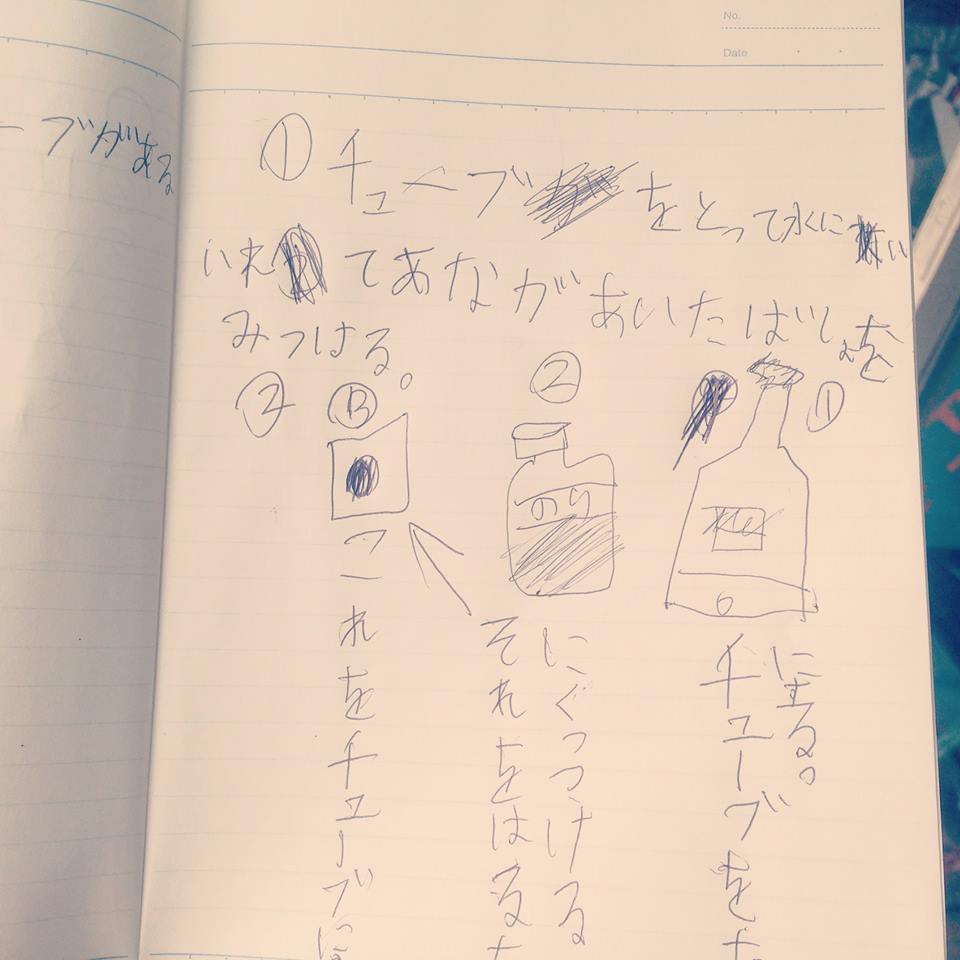 ーブがある
No.
Date
① チューブをとって水に
いれてあながあいたばしょを
みつける。
② Ⓑ ② ①
のり
に塗る。
チューブをた
にくっつける
それをはるた
これをチューブに